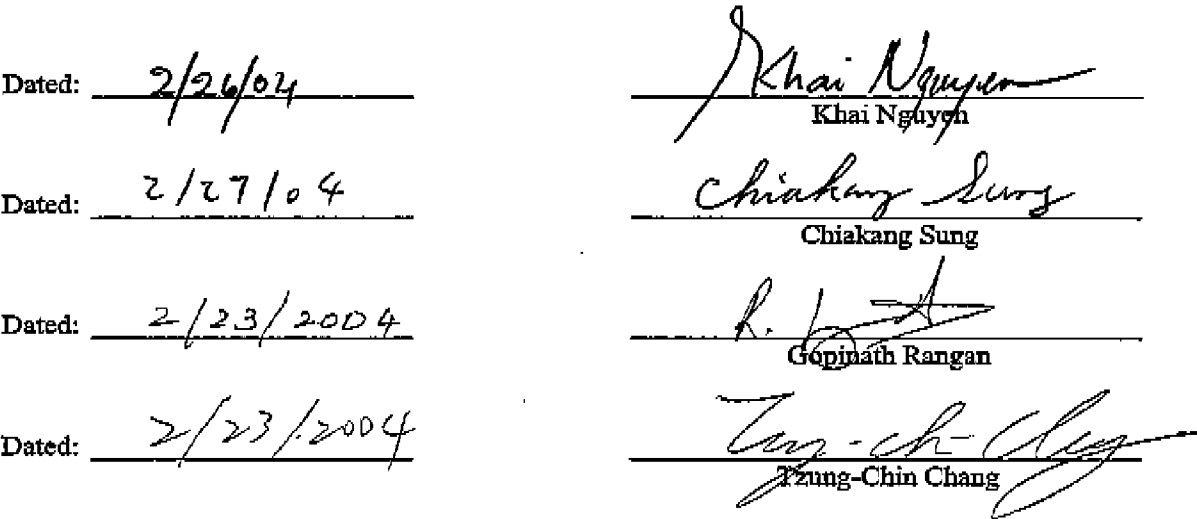 Dated: 2/26/04 Khai Nguyen
Khai Nguyen
Dated: 2/27/04 Chiakang Sung
Chiakang Sung
Dated: 2/23/2004 R.
Gopinath Rangan
Dated: 2/23/2004
Tzung-Chin Chang